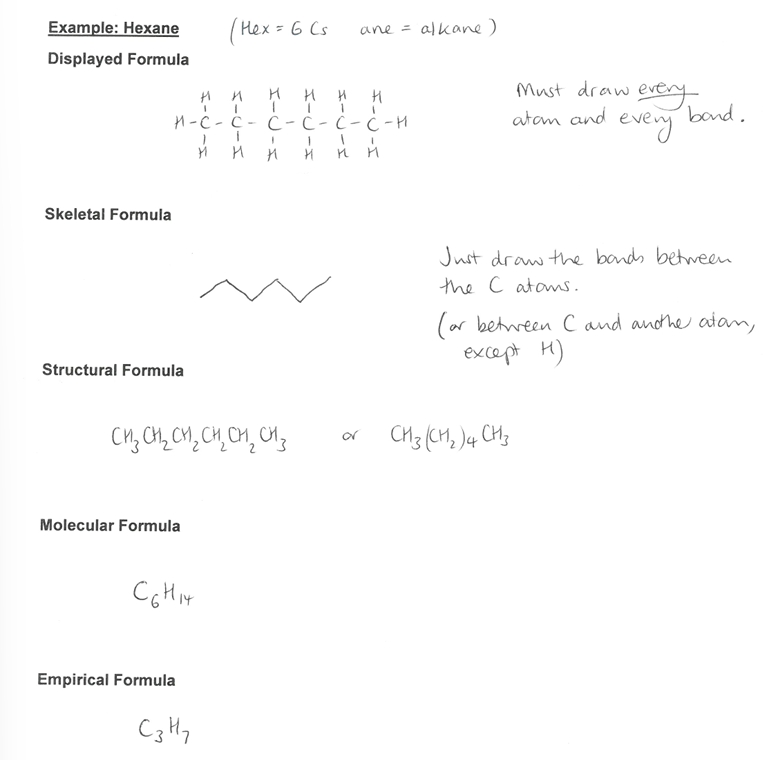 Example: Hexane (Hex = 6 Cs ane = alkane)
Displayed Formula
H H H H H H
H-C-C-C-C-C-C-H
H H H H H H
Must draw every
atom and every bond.
Skeletal Formula
Just draw the bonds between
the C atoms.
(or between C and anothe atom,
except H)
Structural Formula
CH₃CH₂CH₂CH₂CH₂CH₃ or CH₃(CH₂)₄CH₃
Molecular Formula
C₆H₁₄
Empirical Formula
C₃H₇